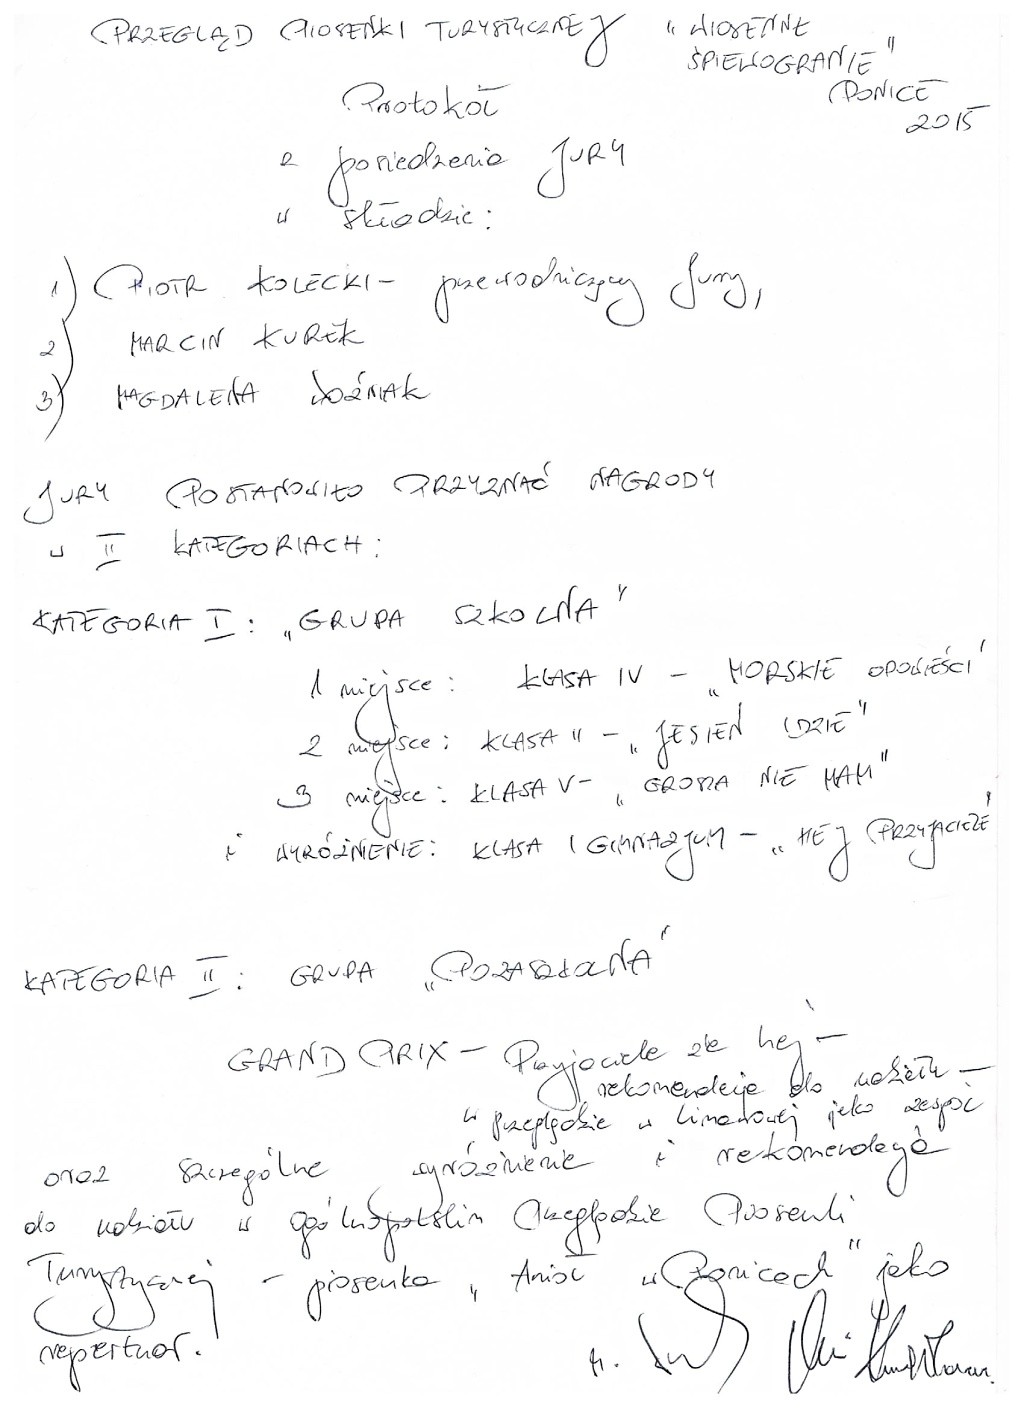 PRZEGLĄD PIOSENKI TURYSTYCZNEJ "WIOSENNE
ŚPIEWOGRANIE"
PONICE
2015
Protokół
z posiedzenia JURY
w składzie:
1) PIOTR KOLECKI - przewodniczący Jury,
2) MARCIN KUREK
3) MAGDALENA WOŹNIAK
JURY POSTANOWIŁO PRZYZNAĆ NAGRODY
w II KATEGORIACH:
KATEGORIA I: „GRUPA SZKOLNA"
1 miejsce: KLASA IV - „MORSKIE OPOWIEŚCI"
2 miejsce: KLASA II - „JESIEŃ IDZIE"
3 miejsce: KLASA V - „GROSZA NIE MAM"
i WYRÓŻNIENIE: KLASA I GIMNAZJUM - „HEJ PRZYJACIELE"
KATEGORIA II: GRUPA „POZASZKOLNA"
GRAND PRIX - Przyjaciele ze hej -
rekomendacja do udziału -
w przeglądzie w Limanowej jako zespół
oraz szczególne wyróżnienie i rekomendację
do udziału w ogólnopolskim Przeglądzie Piosenki
Turystycznej - piosenka „Anioł w Ponicach" jako
repertuar.